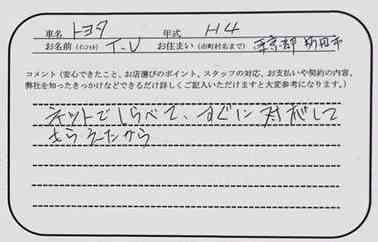 車名 トヨタ 年式 H4
お名前(イニシャル) T.U お住まい(市町村名まで) 東京都 町田市
コメント(安心できたこと、お店選びのポイント、スタッフの対応、お支払いや契約の内容、
弊社を知ったきっかけなどできるだけ詳しくご記入いただけますと大変参考になります。)
ネットでしらべて、すぐに対応して
もらえたから